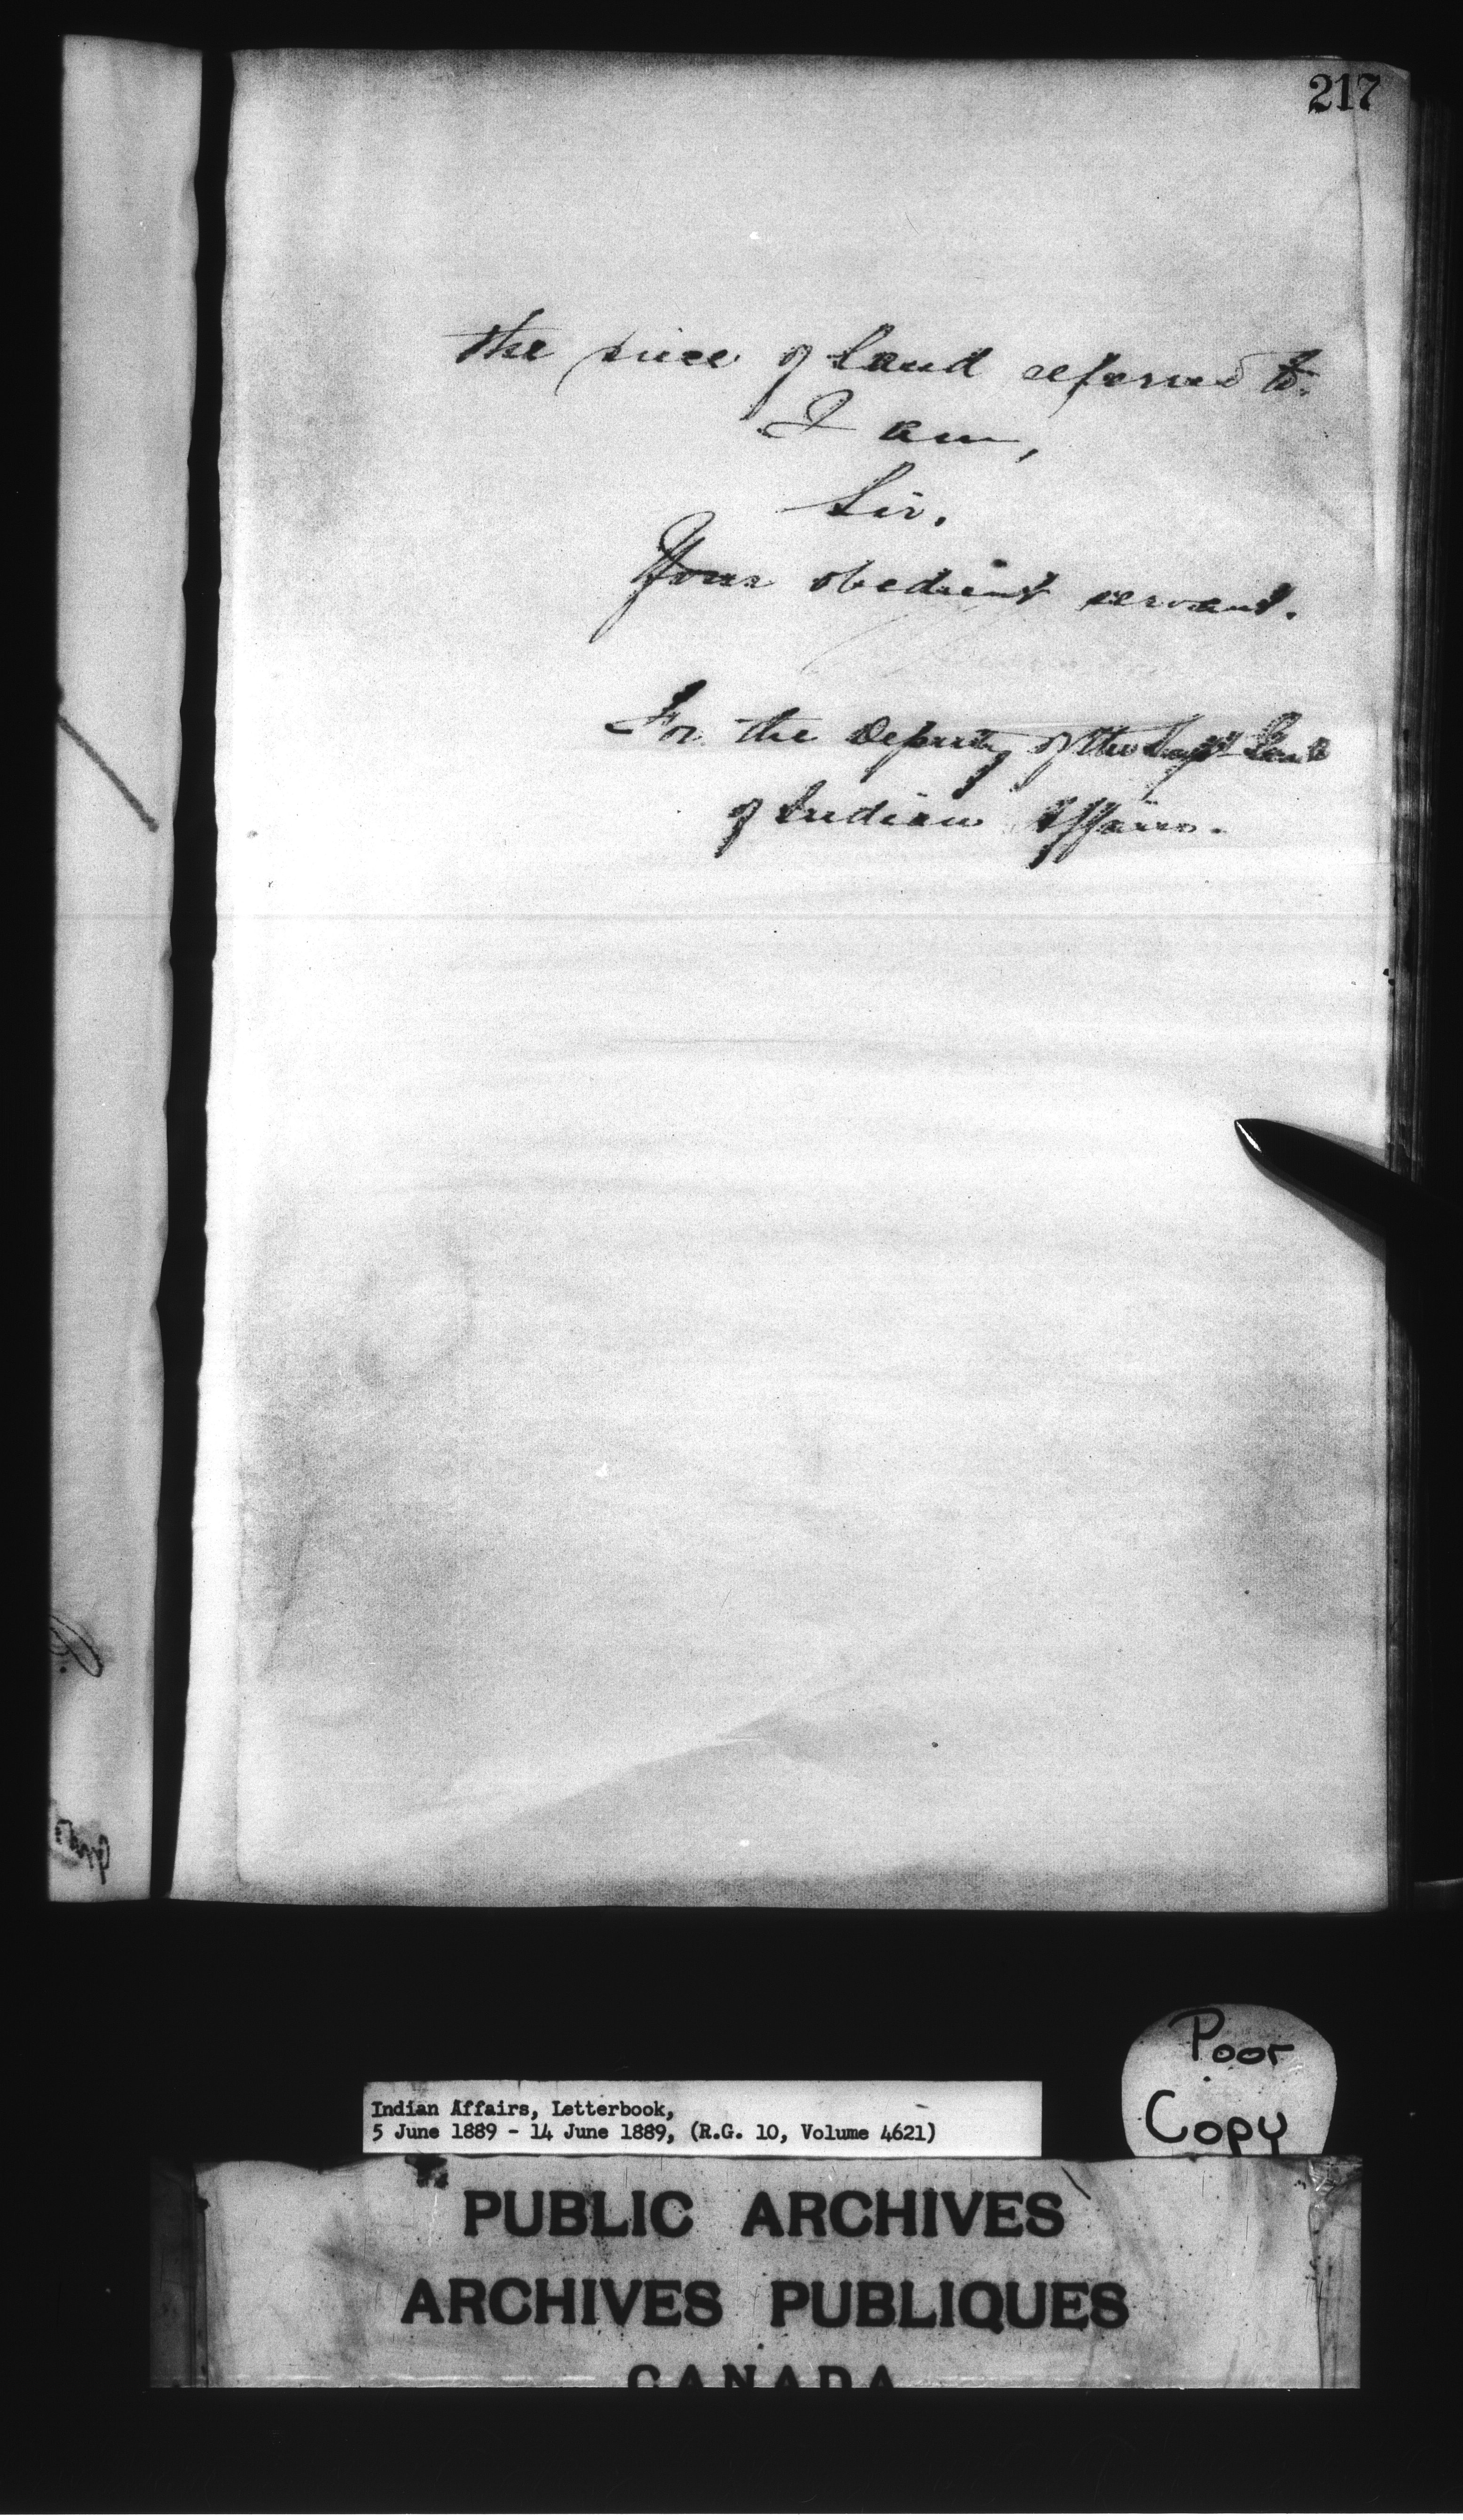 217
the piece of land referred to.
I am,
Sir,
Your obedient servant.
For the Deputy of the Supt Genl
of Indian Affairs.
Poor
Copy
Indian Affairs, Letterbook,
5 June 1889 - 14 June 1889, (R.G. 10, Volume 4621)
PUBLIC ARCHIVES
ARCHIVES PUBLIQUES
CANADA